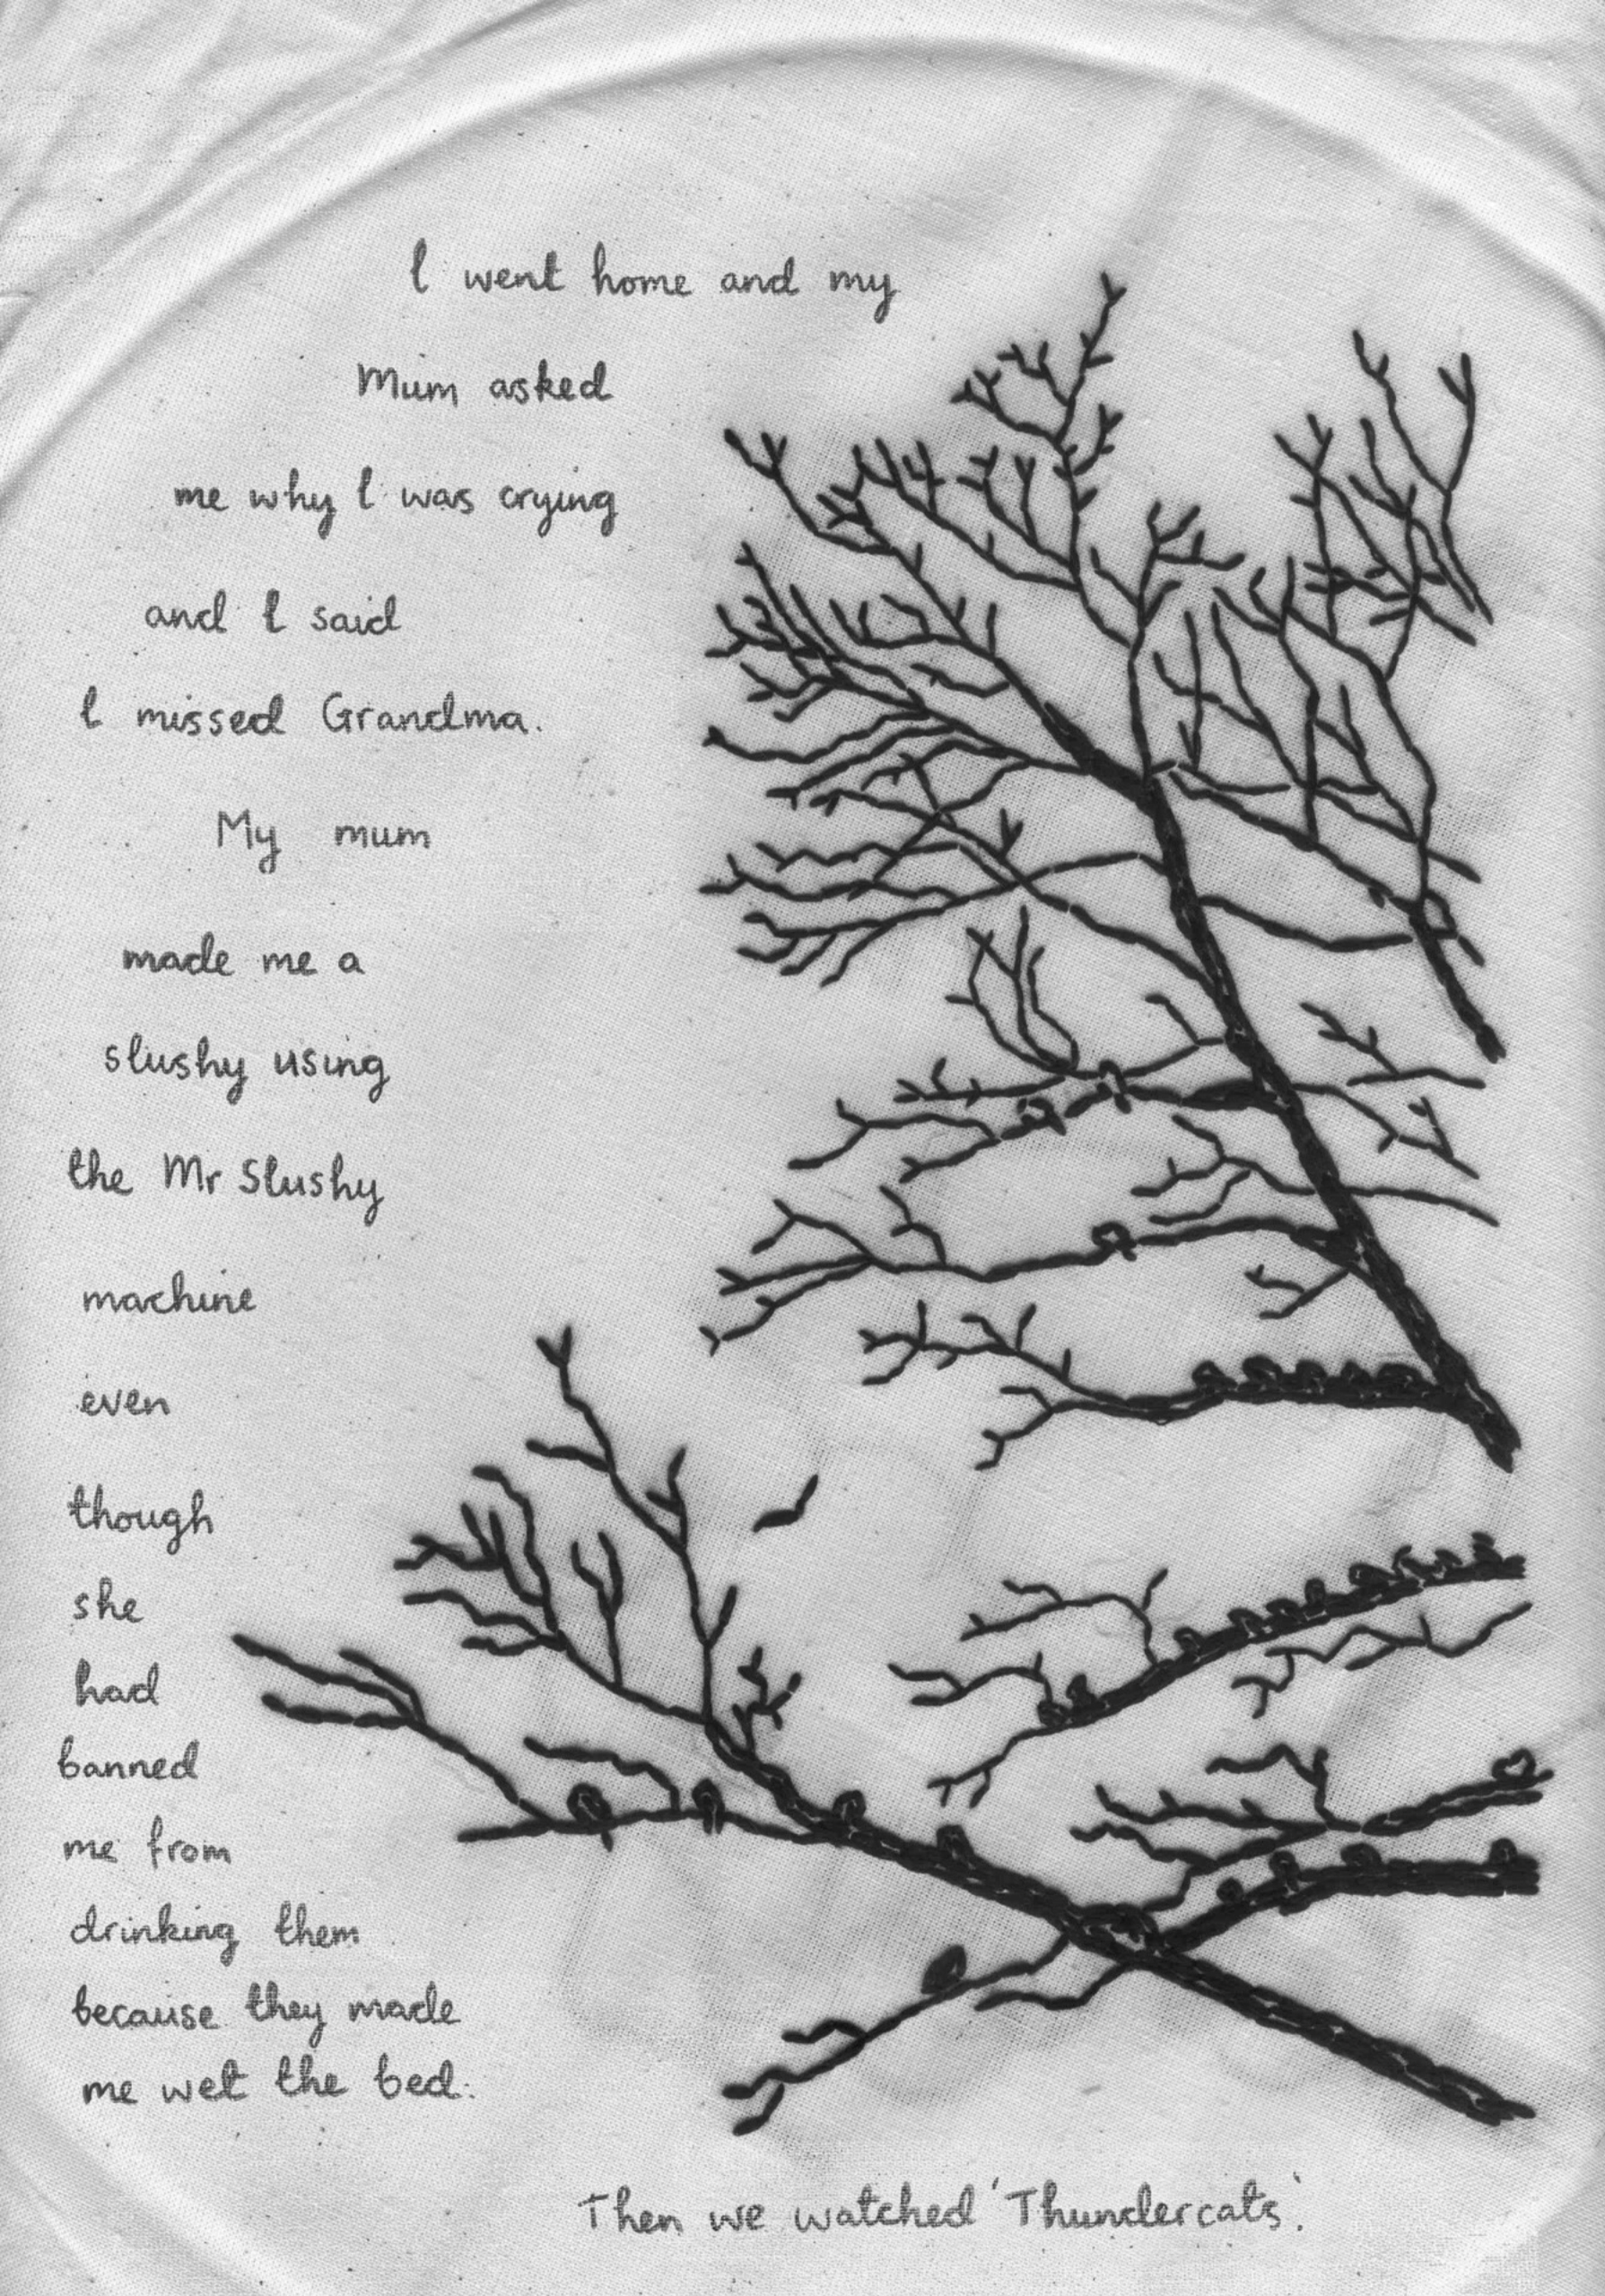 I went home and my
Mum asked
me why I was crying
and I said
I missed Grandma.
My mum
made me a
slushy using
the Mr Slushy
machine
even
though
she
had
banned
me from
drinking them
because they made
me wet the bed.
Then we watched 'Thundercats'.